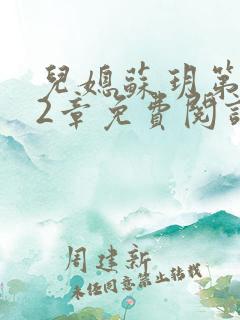 兒媳蘇玥第
2章免費閱
周建新
未经同意禁止转载